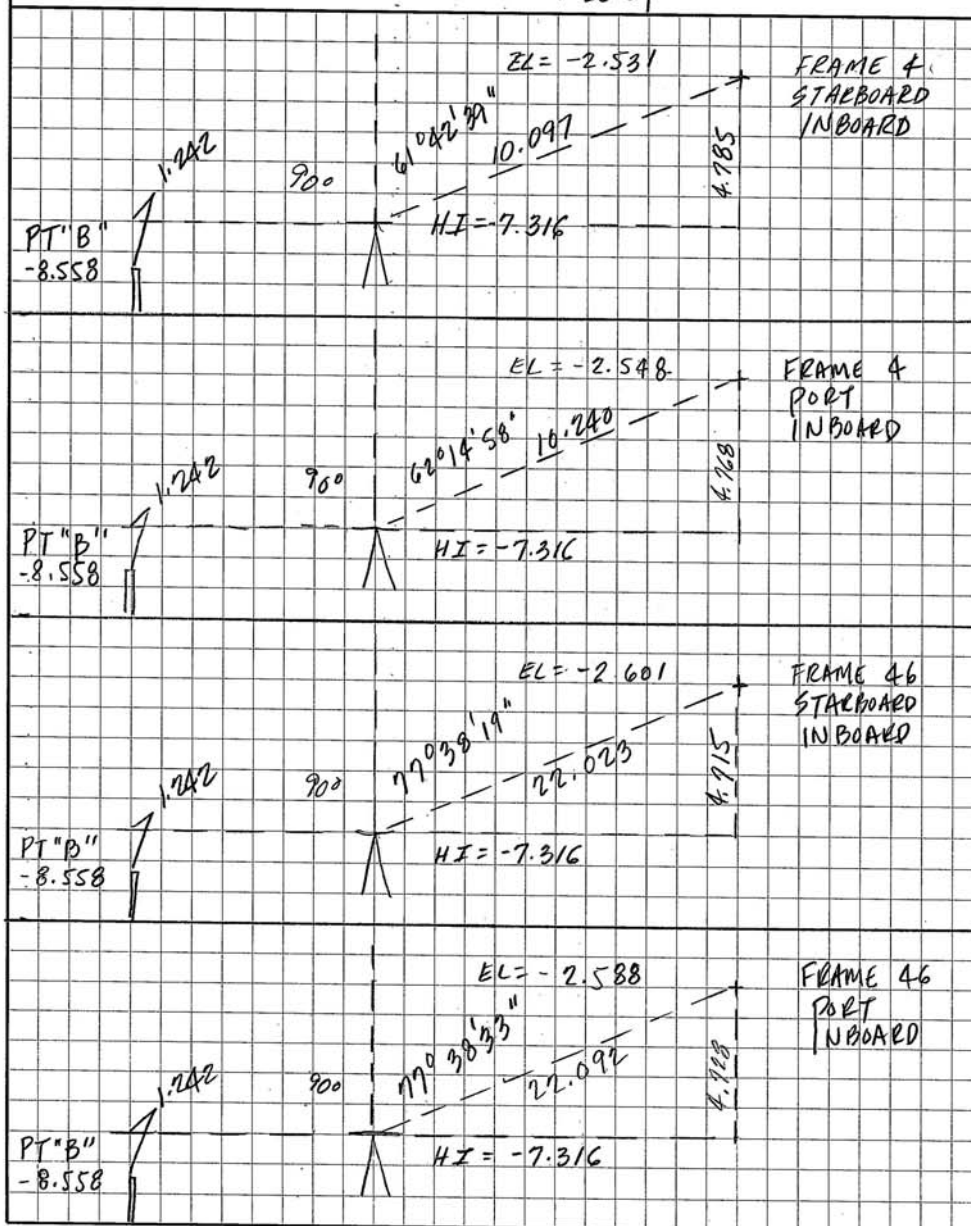 EL = -2.531
FRAME 4
STARBOARD
INBOARD
61°42'39"
10.097
4.785
1.242
90°
HI = -7.316
PT "B"
-8.558
EL = -2.548
FRAME 4
PORT
INBOARD
62°14'58"
10.240
4.768
1.242
90°
HI = -7.316
PT "B"
-8.558
EL = -2.601
FRAME 46
STARBOARD
INBOARD
77°38'19"
22.023
4.715
1.242
90°
HI = -7.316
PT "B"
-8.558
EL = -2.588
FRAME 46
PORT
INBOARD
77°38'33"
22.092
4.728
1.242
90°
HI = -7.316
PT "B"
-8.558